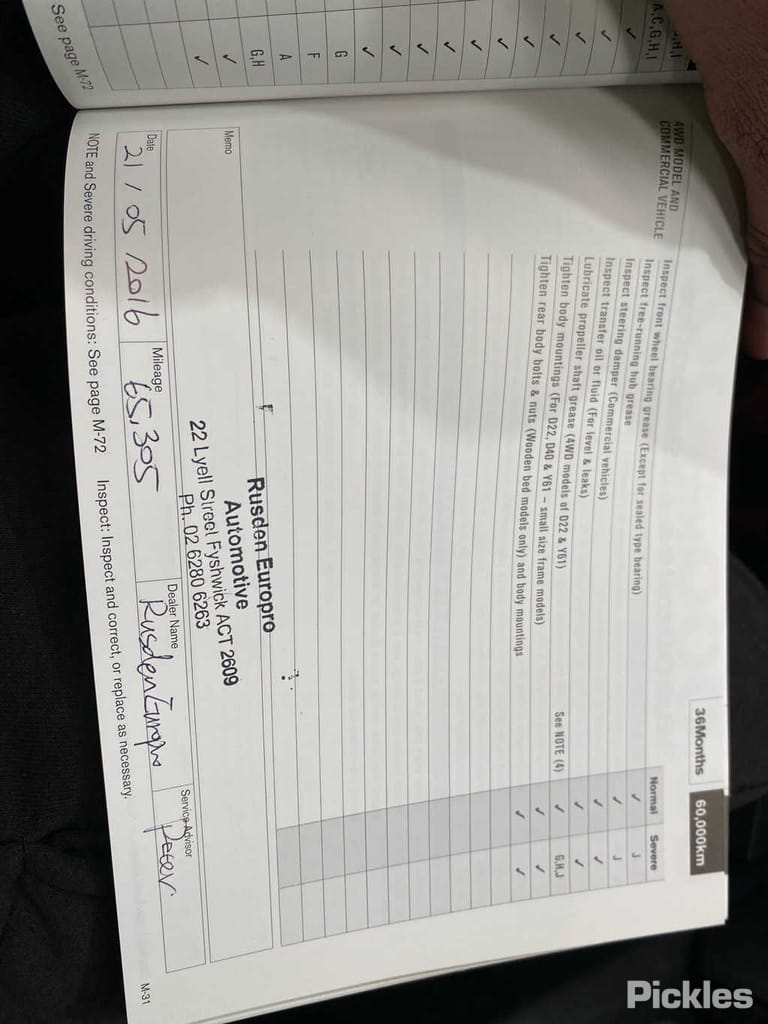 J,H,I
A,C,G,H,I
G
F
A
G,H
See page M-72
4WD MODEL AND
COMMERCIAL VEHICLE
36Months
60,000km
Normal Severe
Inspect front wheel bearing grease (Except for sealed type bearing) ✓ J
Inspect free-running hub grease ✓ J
Inspect steering damper (Commercial vehicles) ✓ ✓
Inspect transfer oil or fluid (For level & leaks) ✓ ✓
Lubricate propeller shaft grease (4WD models of D22 & Y61) See NOTE (4) ✓ G,H,J
Tighten body mountings (For D22, D40 & Y61 – small size frame models) ✓ ✓
Tighten rear body bolts & nuts (Wooden bed models only) and body mountings ✓ ✓
Memo
Rusden Europro
Automotive
22 Lyell Street Fyshwick ACT 2609
Ph. 02 6280 6263
Date 21/05/2016 Mileage 65,305 Dealer Name Rusden Europro Service Advisor Peter
NOTE and Severe driving conditions: See page M-72 Inspect: Inspect and correct, or replace as necessary.
M-31
Pickles